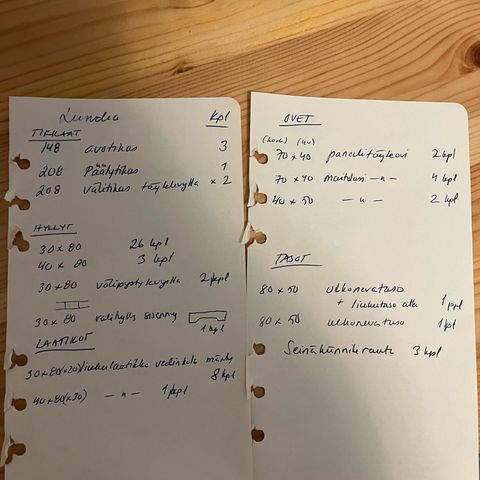 Lundia Kpl
TIKKAAT
148 avotikas 3
208 Päätytikas 1
208 välitikas täyslevyllä x 2
HYLLYT
30 x 80 26 kpl
40 x 80 3 kpl
30 x 80 välipystylevyllä 2 kpl
30 x 80 välihylly 1 kpl
LAATIKOT
30 x 80 (x20) liukulaatikko vedinkolo mänty
8 kpl
40 x 80 (x30) — " — 1 kpl
OVET
(kork) (lev)
70 x 40 paneelitäysovi 2 kpl
70 x 40 — " — 4 kpl
40 x 50 — " — 2 kpl
TASOT
80 x 50 ulkonevataso
+ liukutaso alla 1 kpl
80 x 50 ulkonevataso 1 kpl
Seinäkiinnikerauta 3 kpl